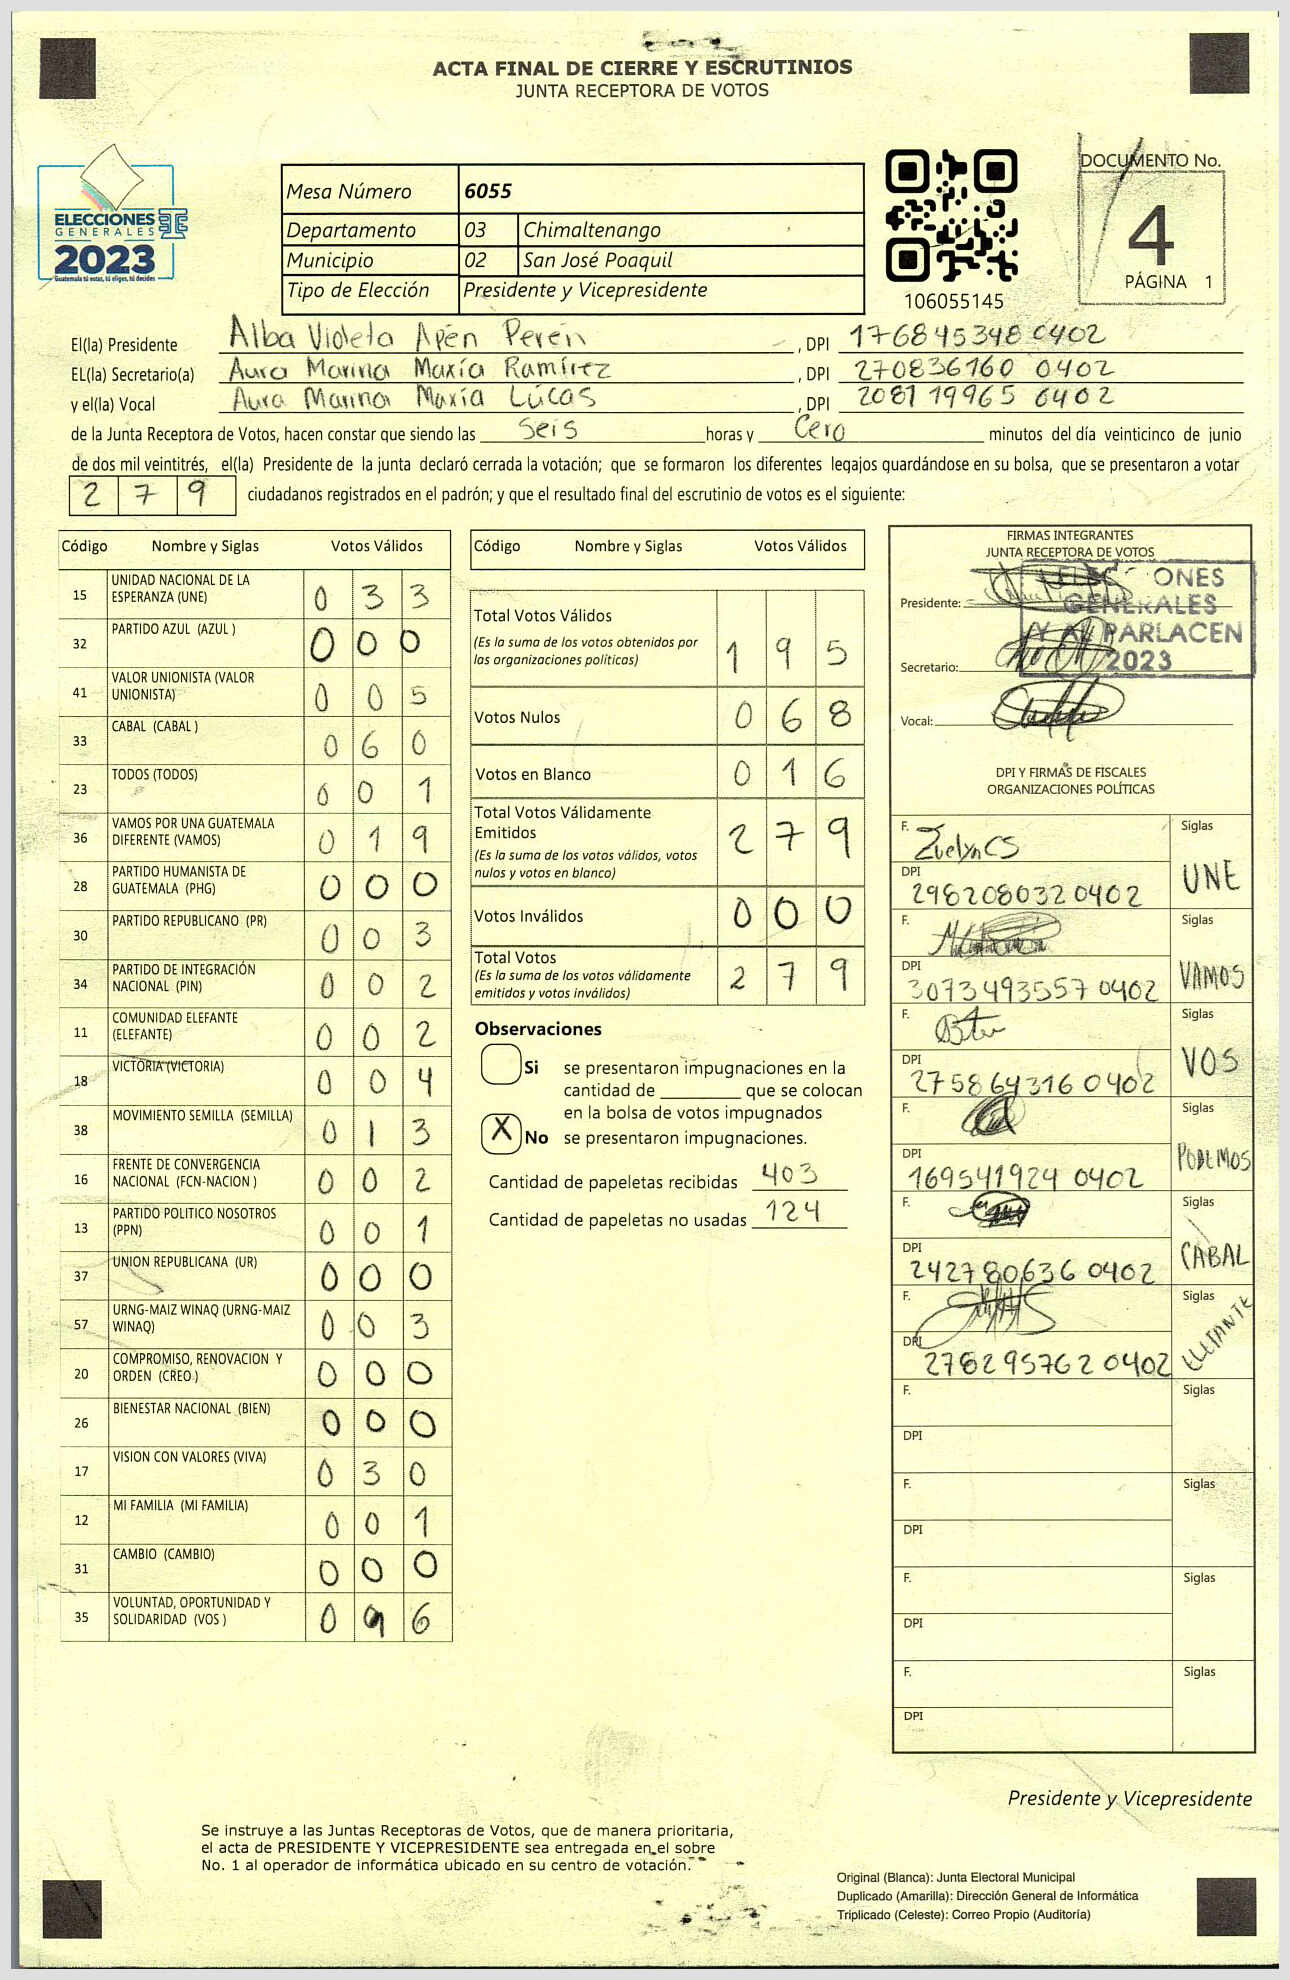 ACTA FINAL DE CIERRE Y ESCRUTINIOS
JUNTA RECEPTORA DE VOTOS
ELECCIONES
GENERALES
2023
Guatemala tú votas, tú eliges, tú decides
Mesa Número 6055
Departamento 03 Chimaltenango
Municipio 02 San José Poaquil
Tipo de Elección Presidente y Vicepresidente
106055145
DOCUMENTO No.
4
PÁGINA 1
El(la) Presidente Alba Violeta Apén Perén , DPI 176845348 0402
EL(la) Secretario(a) Aura Marina Maxía Ramírez , DPI 270836160 0402
y el(la) Vocal Aura Marina Maxía Lucas , DPI 208119965 0402
de la Junta Receptora de Votos, hacen constar que siendo las Seis horas y Cero minutos del día veinticinco de junio
de dos mil veintitrés, el(la) Presidente de la junta declaró cerrada la votación; que se formaron los diferentes legajos guardándose en su bolsa, que se presentaron a votar
279 ciudadanos registrados en el padrón; y que el resultado final del escrutinio de votos es el siguiente:
Código Nombre y Siglas Votos Válidos
15 UNIDAD NACIONAL DE LA ESPERANZA (UNE) 033
32 PARTIDO AZUL (AZUL ) 000
41 VALOR UNIONISTA (VALOR UNIONISTA) 005
33 CABAL (CABAL ) 060
23 TODOS (TODOS) 001
36 VAMOS POR UNA GUATEMALA DIFERENTE (VAMOS) 019
28 PARTIDO HUMANISTA DE GUATEMALA (PHG) 000
30 PARTIDO REPUBLICANO (PR) 003
34 PARTIDO DE INTEGRACIÓN NACIONAL (PIN) 002
11 COMUNIDAD ELEFANTE (ELEFANTE) 002
18 VICTORIA (VICTORIA) 004
38 MOVIMIENTO SEMILLA (SEMILLA) 013
16 FRENTE DE CONVERGENCIA NACIONAL (FCN-NACION ) 002
13 PARTIDO POLITICO NOSOTROS (PPN) 001
37 UNION REPUBLICANA (UR) 000
57 URNG-MAIZ WINAQ (URNG-MAIZ WINAQ) 003
20 COMPROMISO, RENOVACION Y ORDEN (CREO ) 000
26 BIENESTAR NACIONAL (BIEN) 000
17 VISION CON VALORES (VIVA) 030
12 MI FAMILIA (MI FAMILIA) 001
31 CAMBIO (CAMBIO) 000
35 VOLUNTAD, OPORTUNIDAD Y SOLIDARIDAD (VOS )
Código Nombre y Siglas Votos Válidos
Total Votos Válidos 195
(Es la suma de los votos obtenidos por las organizaciones políticas)
Votos Nulos 068
Votos en Blanco 016
Total Votos Válidamente Emitidos 279
(Es la suma de los votos válidos, votos nulos y votos en blanco)
Votos Inválidos 000
Total Votos 279
(Es la suma de los votos válidamente emitidos y votos inválidos)
Observaciones
Si se presentaron impugnaciones en la
cantidad de ________ que se colocan
en la bolsa de votos impugnados
X No se presentaron impugnaciones.
Cantidad de papeletas recibidas 403
Cantidad de papeletas no usadas 124
FIRMAS INTEGRANTES
JUNTA RECEPTORA DE VOTOS
ELECCIONES
GENERALES
Y AL PARLACEN
2023
Presidente:
Secretario:
Vocal:
DPI Y FIRMAS DE FISCALES
ORGANIZACIONES POLÍTICAS
F. EvelynCS Siglas
DPI 298208032 0402 UNE
F. Siglas
DPI 3073493557 0402 VAMOS
F. Siglas
DPI 275864316 0402 VOS
F. Siglas
DPI 169541924 0402 PODEMOS
F. Siglas
DPI 242780636 0402 CABAL
F. Siglas
DPI 278295762 0402 ELEFANTE
F. Siglas
DPI
F. Siglas
DPI
F. Siglas
DPI
F. Siglas
DPI
Presidente y Vicepresidente
Se instruye a las Juntas Receptoras de Votos, que de manera prioritaria,
el acta de PRESIDENTE Y VICEPRESIDENTE sea entregada en el sobre
No. 1 al operador de informática ubicado en su centro de votación.
Original (Blanca): Junta Electoral Municipal
Duplicado (Amarilla): Dirección General de Informática
Triplicado (Celeste): Correo Propio (Auditoría)